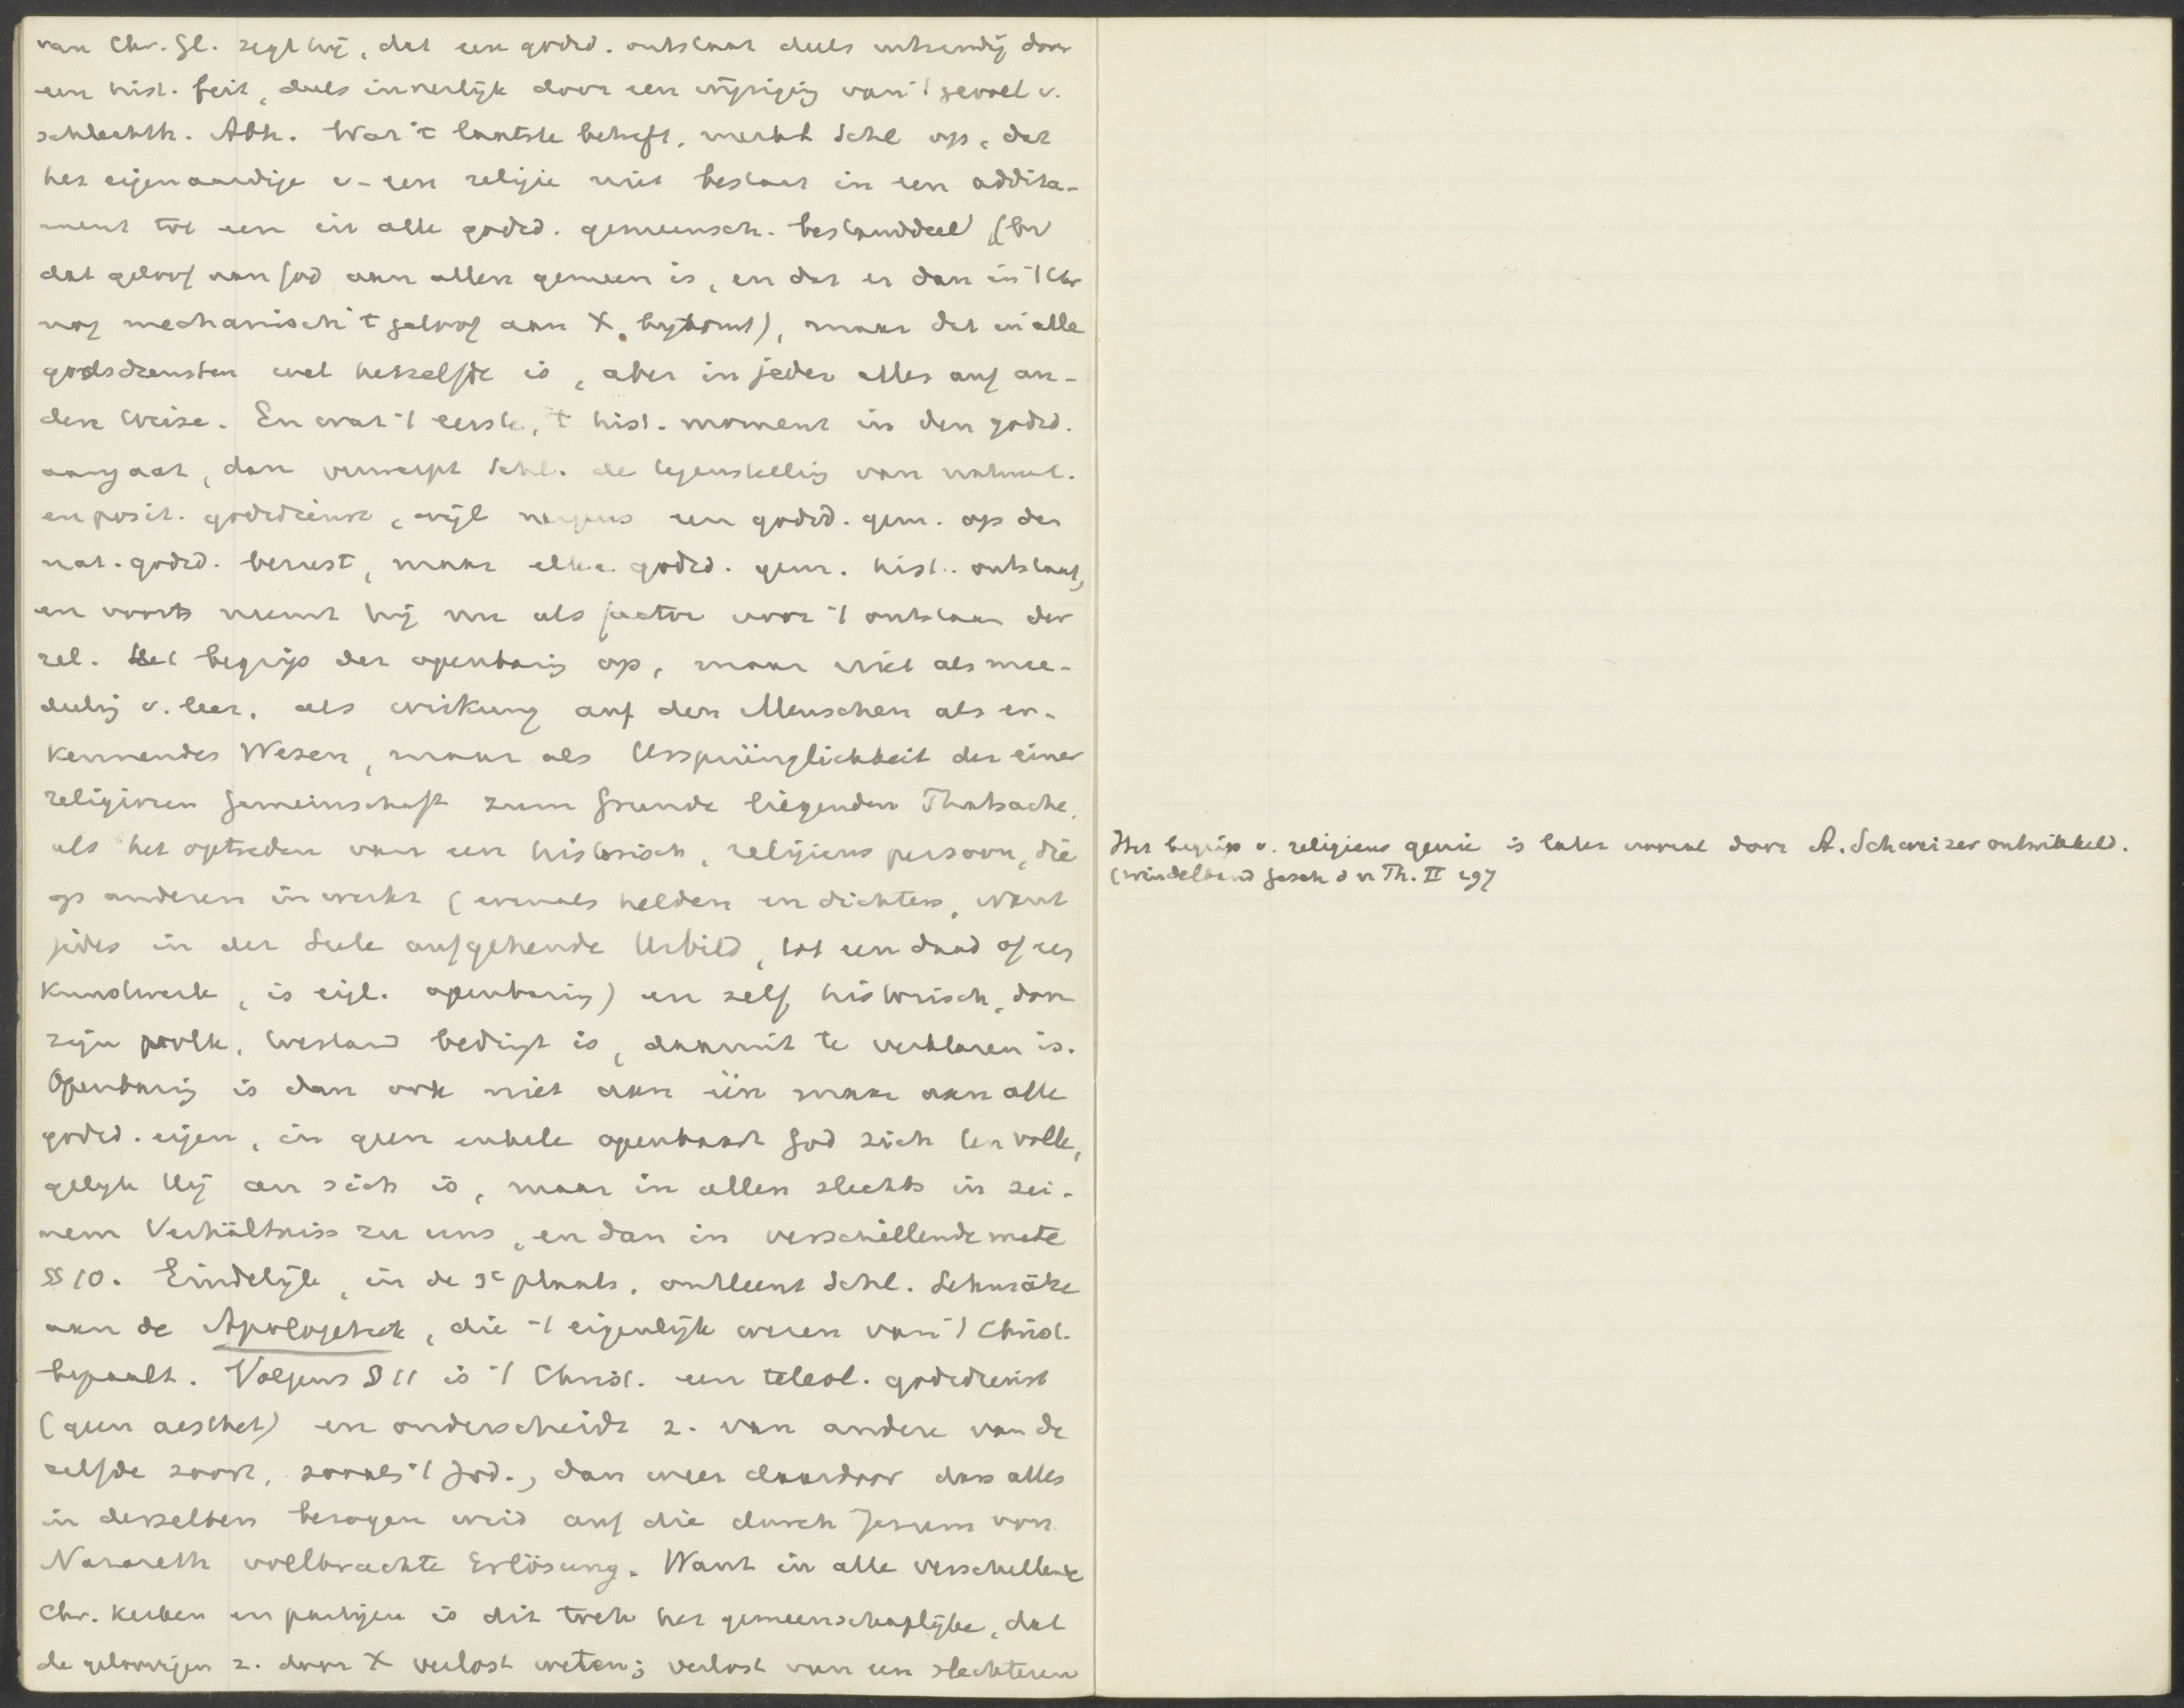 van Chr. Gl. zegt hij, dat een godsd. ontstaat deels uitwendig door
een hist. feit, deels innerlijk door een wijziging van 't gevoel v.
schlechth. Abh. Wat 't laatste betreft, merkt Schl op, dat
het eigenaardige v. een religie niet bestaat in een addita-
ment tot een in alle godsd. gemeensch. bestanddeel (bv
dat geloof aan God aan allen gemeen is, en dat er dan in 't Chr
nog mechanisch 't geloof aan X. bijkomt), maar dat in alle
godsdiensten wel hetzelfde is, aber in jeder alles auf an-
dere Weise. En wat 't eerste, 't hist. moment in den godsd.
aangaat, dan verwerpt Schl. de tegenstelling van natuurl.
en posit. godsdienst, wijl nergens een godsd. gem. op den
nat. godsd. berust, maar elke godsd. gem. hist. ontstaat,
en voorts neemt hij nu als factor voor 't ontstaan der
rel. het begrip der openbaring op, maar niet als mee-
deeling v. leer, als Wirkung auf den Menschen als er-
kennendes Wesen, maar als Ursprünglichkeit der einer
religiösen Gemeinschaft zum Grunde liegenden Thatsache,
als het optreden van een historisch, religieus persoon, die
op anderen inwerkt (evenals helden en dichters, want
jedes in der Seele aufgehende Urbild, tot een daad of een
kunstwerk, is eigl. openbaring) en zelf historisch, door
zijn volk, toestand bedingt is, daaruit te verklaren is.
Openbaring is dan ook niet aan één maar aan alle
godsd. eigen, in geen enkele openbaart God zich ten volle,
gelijk Hij an sich is, maar in allen slechts in sei-
nem Verhältniss zu uns, en dan in verschillende mate
§ 10. Eindelijk, in de 3e plaats, ontleent Schl. Lehnsätze
aan de Apologetiek, die 't eigenlijk wezen van 't Christ.
bepaalt. Volgens § 11 is 't Christ. een teleol. godsdienst
(geen aesthet) en onderscheidt z. van andere van de
zelfde soort, zooals 't Jod., dan weer daardoor dass alles
in derselben bezogen wird auf die durch Jesum von
Nazareth vollbrachte Erlösung. Want in alle verschillende
Chr. kerken en partijen is dit trek het gemeenschaplijke, dat
de geloovigen z. door X verlost weten; verlost van een slechteren
Het begrip v. religieus genie is later vooral door A. Schweizer ontwikkeld.
(Windelband Gesch d n Th. II 297